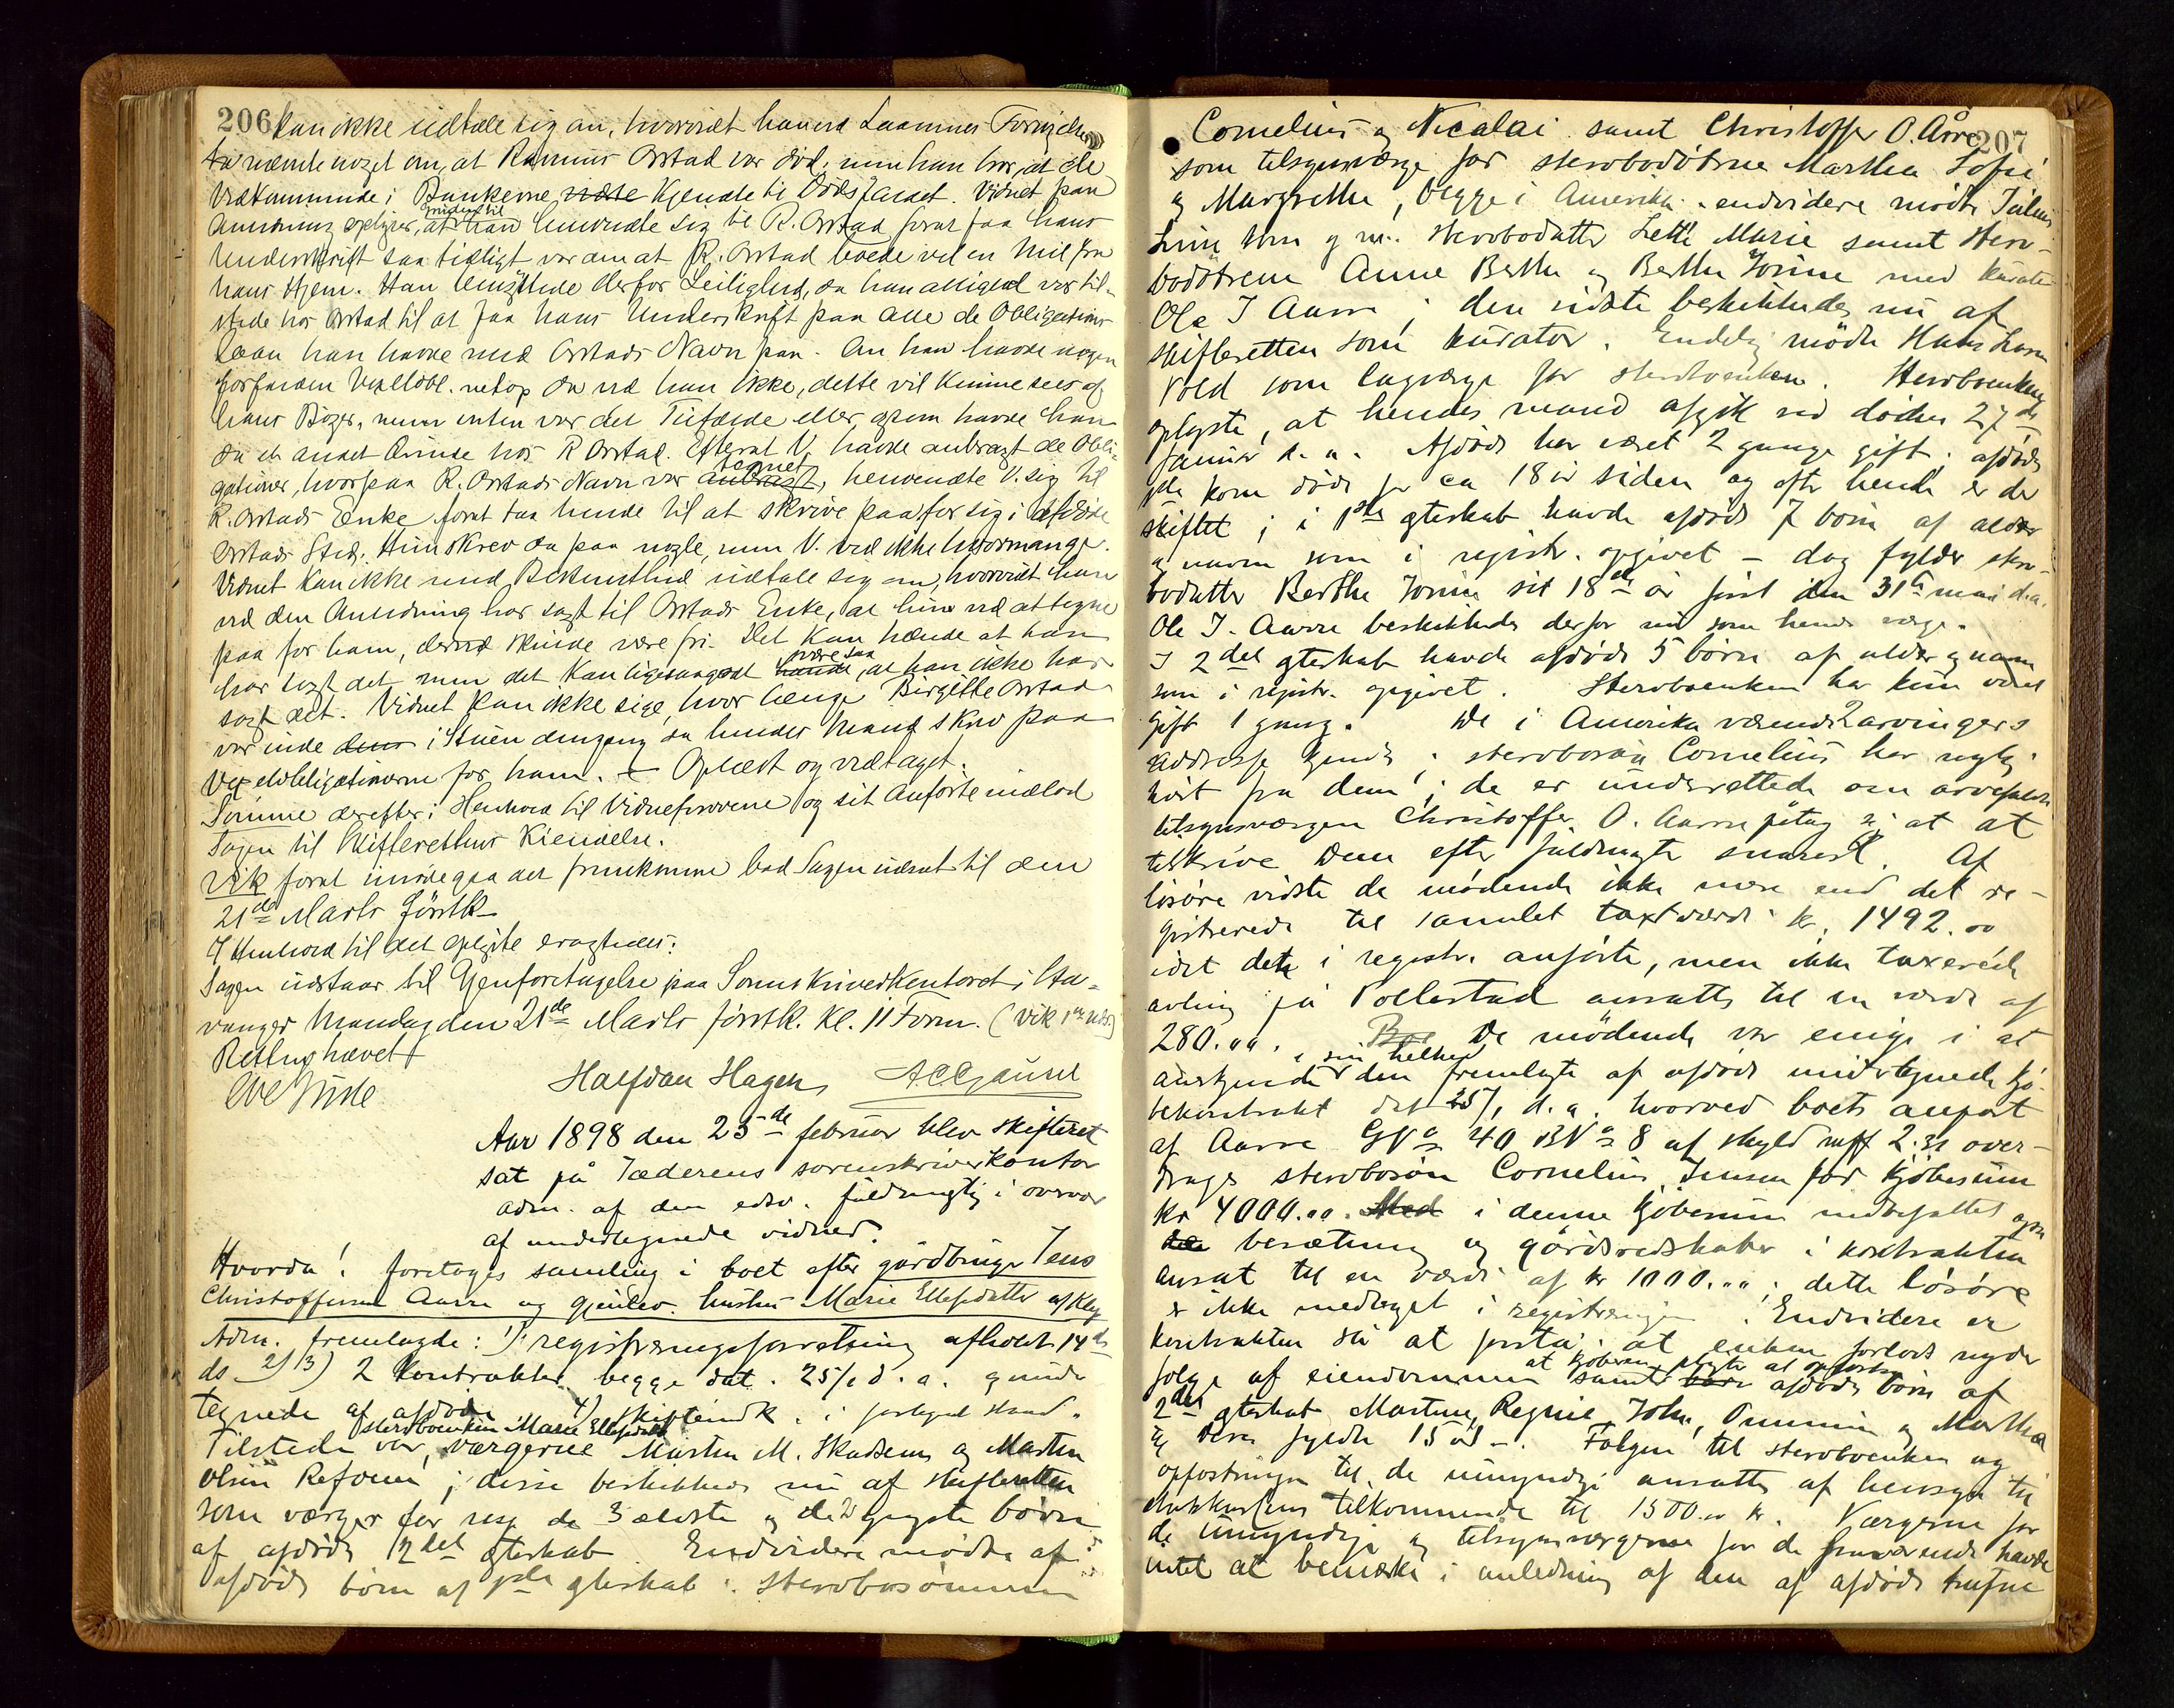 206
kan ikke udtale sig om, hvorvidt han ved Laanenes Fornyelse
da nævnte noget om, at Rasmus Orstad var død, men han tror, at de
Vedkommende i Bankerne vidste kjendte til Dødsfaldet. Vidnet paa
Anledning oplyser, at han grunden til henvendte sig til R. Orstad forat faa hans
Underskrift saa tidligt var den at R. Orstad boede vel en Mil fra
hans Hjem. Han benyttede derfor Leilighed, da han alligevel var til-
stede hos Orstad til at faa hans Underskrift paa alle de Obligations-
laan han havde med Orstads Navn paa. Om han havde nogen
forfalden Vexelobl. netop da ved han ikke, dette vil kunne sees af
hans Bøger, men enten var det Tilfælde eller ogsaa havde han
da et andet Ærinde hos R Orstad. Efterat V. havde anbragt de Obli-
gationer, hvorpaa R. Orstads Navn var anbragt tegnet, henvendte V. sig til
R. Orstads Enke forat faa hende til at skrive paa for sig i afdøde
Orstads Sted. Hun skrev da paa nogle, men V. ved ikke hvormange.
Vidnet kan ikke med Bestemthed udtale sig om, hvorvidt han
ved den Anledning har sagt til Orstads Enke, at hun ved at tegne
paa for ham, derved skulde være fri. Det kan hænde at han
har sagt det men det kan ligesaagodt hænde være saa, at han ikke har
sagt det. Vidnet kan ikke sige, hvor længe Birgitte Orstad
var inde dens i Stuen dengang da hendes Mand skrev paa
Vexelobligationerne for ham. – Oplæst og vedtaget.
Sømme derefter i Henhold til Vidneførerne og sit Anførte indlod
Sagen til Skifterettens Kjendelse.
Vik forat imødegaa det fremkomne bad Sagen udsat til den
21de Marts førstk.
I Henhold til det oplyste eragtedes:
Sagen udstaar til Gjenforetagelse paa Sorenskriverkontoret i Sta-
vanger Mandag den 21de Marts førstk. Kl. 11 Form. (Vik 1ste Uds.)
Retten hævet
Halfdan Hagen
Aar 1898 den 25de februar blev skifteret
sat på Jæderens sorenskriverkontor
adm. af den edsv. fuldmægtig i overvær
af undertegnede vidner.
Hvorda! foretoges samling i boet efter gårdbruger Jens
Christoffersen Aarre og gjenlev. hustru Marie Ellefsdatter af Klep
Adm. fremlagde: 1) registreringsforretning afholdt 14de
ds 2) 3) 2 kontrakter begge dat. 25/1 d. a. og under-
tegnede af afdøde 4) skifteindk. i forkyndt stand.
Tilstede var stervboenken Marie Ellefsdatter, værgerne Morten M. Skadsem og Morten
Olsen Refsnes; disse beskikkedes nu af skifteretten
som værger for resp de 3 ældste og de 2 yngste børn
af afdødes 2det ægteskab. Endvidere mødte af
afdødes børn af 1ste ægteskab: Stervbosønnerne
207
Cornelius og Nicolai samt Christoffer O. Årre
som tilsynsværge for stervbodøtrene Martha Sofie
og Margrethe, begge i Amerika. endvidere mødte Julius
Lima som g m. stervbodatter Lette Marie samt sterv-
bodøtrene Anne Berthe og Berthe Jorine med kurator
Ole J Aarre; den sidste beskikkedes nu af
skifteretten som kurator. Endelig mødte Hans Larsen
Vold som lagværge for stervboenken. Stervboenken
oplyste, at hendes mand afgik ved døden 27de
januar d. a. Afdøde har været 2 gange gift; afdødes
1ste kone døde for ca 18 år siden og efter hende er der
skiftet; i 1ste ægteskab havde afdøde 7 børn af alder
og navn som i registr. opgivet – dog fylder sterv-
bodatter Berthe Jorine sit 18de år først den 31te mai d.a.
Ole J. Aarre beskikkedes derfor nu som hendes værge.
I 2det ægteskab havde afdøde 5 børn af alder og navn
som i registr. opgivet. Stervboenken har kun været
gift 1 gang. De i Amerika værende 2 arvingers
addresse kjendes; stervbosøn Cornelius har nylig
hørt fra dem; de er underrettede om arvefaldet
tilsynsværgen Christoffer O. Aarre påtog sig at at
tilskrive dem efter fuldmagter snarest. Af
løsøre vidste de mødende ikke mere end det re-
gistrerede til samlet taxtværdi kr. 1492.00
idet dette i registr. anførte, men ikke taxerede
avling på Pollestad ansattes til en værdi af
280.00. Boe De mødende var enige i at
anerkjende i sin helhed den fremlagte af afdøde undertegnede kjø-
bekontrakt dat 25/1 d. a. hvorved boets anpart
af Aarre GNo 40 BNo 8 af skyld mrk 2.31 over-
drages stervbosøn Cornelius Jensen for kjøbesum
kr 4000.00. Med i denne kjøbesum indbefattes også
den besætning og gårdsredskaber i kontrakten
ansat til en værdi af kr 1000.00; dette løsøre
er ikke medtaget i registreringen. Endvidere er
kontrakten så at forstå, at enken forlods nyder
følge af eiendommen samt at kjøberen pligter at opfostre børn afdødes børn af
2det ægteskab Martine, Regine, Johs, Ommund og Martha
til deres fyldte 15 år –. Følgen til stervboenken og
opfostringen til de umyndige ansattes af hensyn til
statskassens tilkommende til 1500.00 kr. Værgerne for
de umyndige og tilsynsværgerne for de fraværende havde
intet at bemærke i anledning af den af afdøde trufne